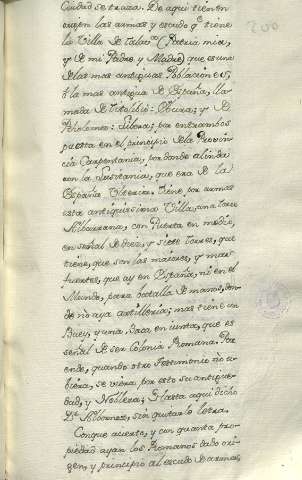 200
Ciudad se traza. De aqui tienen
origen las armas y escudo q.e tiene
la Villa de Talav.ra (Patria mia,
y de mi Padre, y Madre) que es una
de las mas antiguas Poblacion es,
o la mas antigua de España, lla
mada de Titolibio: Obura; y de
Ptholomeo: Libora; por entrambos
puesta en el principio de la Provin
cia Carpentania, por donde alinda
con la Lusitania, que era de la
España Ulterior. Tiene por armas
esta antiquissima Villa, una torre
Albarrana, con Puerta en medio,
en señal de diez, y siete torres, que
tiene, que son las maiores, y mas
fuertes, que ay en España, ni en el
Mundo, para batalla de manos, don
de no aya artilleria; mas tiene un
Buey, y una Baca en iunta, que es
señal de ser Colonia Romana. Por
ende, quando otro testimonio no tu
biera, se viera por esto su antigue
dad, y Nobleza; Hasta aqui dicho
D.r Albornoz, sin quitar lo letra.
Con que acierto, y con quanta pro
piedad ayan los Romanos dado ori
gen, y principio al escudo de armas,